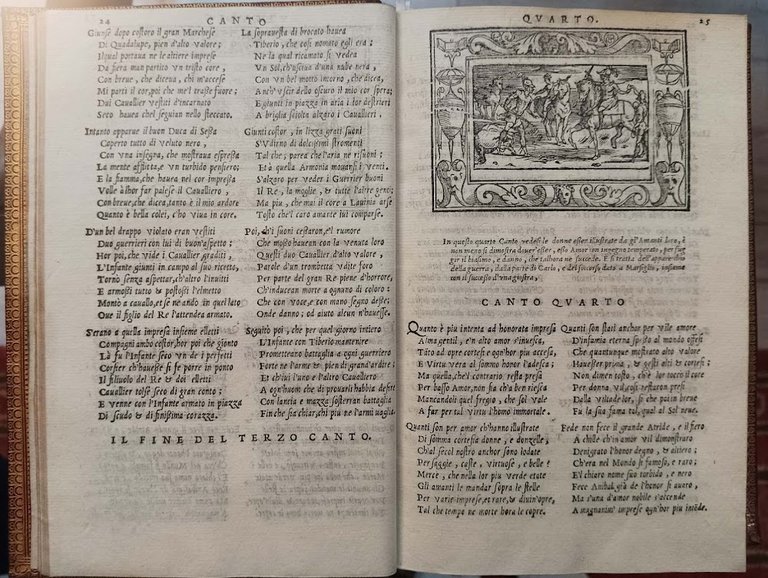 24 CANTO
Giunse dopo costoro il gran Marchese
Di Quadalupe, pien d'alto valore;
Ilqual portaua ne le altiere imprese
Da fiera man partito vn tristo core,
Con breue, che dicea, chi m'accese
Mi parti il cor, poi che me'l trasse fuore;
Dui Cauallier vestiti d'incarnato
Seco hauea che'l seguian nello steccato.
Infanto apparue il buon Duca di Sesta
Coperto tutto di veluto nero,
Con vna insegna, che mostraua espresta
La mente afflitta, e vn turbido pensiero;
E la fiamma, che hauea nel cor impressa
Volle a lhor far palese il Caualliero,
Con breue, che dicea, tanto è il mio ardore
Quanto è bella colei, c'ho viua in core.
D'un bel drappo violato eran vestiti
Duo guerrieri con lui di buon'aspetto;
Hor poi, che vide i Cauallier graditi,
L'Infante giunti in campo al suo ricetto,
Tornò senza aspettar, ch'altro l'inuiti
E armossi tutto & postosi l'elmetto
Montò a cauallo, et se ne andò in quel lato
Oue il figlio del Re l'attendea armato.
Serano a quella impresa insieme eletti
Compagni ambo costor, hor poi che gionto
Là fu l'Infante seco vn de i perfetti
Corsier c'hauesse si fe porre in ponto
Il filiuolo del Re & doi eletti
Cauallier tolse seco di gran conto;
E venne con l'Infante armato in piazza
Di scudo & di finissima corazza.
La sopravesta di brocato hauea
Tiberio, che cosi nomato egli era;
Ne la qual ricamato si vedea
Vn Sol, ch'usciua d'una nube nera,
Con vn bel motto intorno, che dicea,
Anch'vscir dello oscuro il mio cor spera;
E giunti in piazza in aria i lor destrieri
A briglia sciolta alzaro i Cauallieri,
Giunti costor, in lizza grati suoni
S'vdirno di dolcissimi stromenti
Tal che, parea che l'aria ne risuoni;
Et à quella Armonia mouansi i venti.
S'alzaro per veder i Guerrier buoni
Il Re, la moglie, & tutte l'altre genti;
Ma piu, che mai il core a Lauinia arse
Tosto che'l caro amante lui comparse.
Poi, ch'i suoni cestaron, e'l rumore
Che mosso haueun con la venuta loro
Questi duo Cauallier d'alto valore,
Parole d'un trombetta vdite foro
Per parte del gran Re piene d'horrore,
Ch'inducean morte a ognuno di coloro:
Che con voce, e con mano segno deste;
Onde danno; od aiuto alcun n'hauesse.
Seguitò poi, che per quel giorno intiero
L'Infante con Tiberio mantenire
Prometteano battaglia a ogni guerriero
Forte ne l'arme & pien di grand'ardire;
Et ch'iui l'uno e l'altro Cauallero
A ogn'huom che di prouarsi habbia desire
Con lancia e mazza sosterran battaglia
Fin che sia chiar, chi piu ne l'armi vaglia.
IL FINE DEL TERZO CANTO.
QVARTO. 25
In questo quarto Canto vedesi le donne esser illustrate da gl'Amanti loro, e
non meno si dimostra douer'esser, esso Amor con inpegno temperato, per fug
gir il biasimo, e danno, che talhora ne succede. E si tratta dell'apparecchio
della guerra, dalla parte di Carlo, e del soccorso dato a Marsiglio, insieme
con il successo d'una giostra,
CANTO QVARTO
Quanto è piu intenta ad honorata impresa
Alma gentil, e'n alto amor s'inuesca,
Tãto ad opre cortesi ogn'hor piu accesa,
E Virtu vera al sommo honor l'adesca;
Ma quella, che'l contrario resta presa
Per basso Amor, non fia ch'a ben riesca
Mancandoli quel fregio, che sol vale
A far per tal virtu l'homo immortale.
Quanti son per amor c'hanno illustrate
Di somma cortesia donne, e donzelle;
Ch'al secol nostro anchor sono lodate
Per saggie, caste, virtuose, e belle?
Merce, che nella lor piu verde etate
Gli amanti le mandar sopra le stelle
Per varie imprese, et rare, & diuin'opre,
Tal che tempo ne morte hora le copre.
Quanti son stati anchor per vile amore
D'infamia eterna sparsi al mondo offesi
Che quantunque mostrato alto valore
Hauesser prima, & gesti alti & cortesi;
Non dimen tosto, che'l desir d'honore
Per donna vil, così restaron presi
Dalla viltade lor, si che potin breue
Fu la sua fama tal, qual al Sol neue.
Fede non fece il grande Atride, e il fiero
Achille ch'in amor vil dimostraro
Denigrato l'honor degno, & altiero;
Ch'era nel Mondo si famoso, e raro;
E'l chiaro nome suo torbido, e nero
Fece Anibal, già de l'honor si auaro,
Ma s'una d'amor nobile s'accende
A magnanim' imprese ogn'hor piu intẽde.